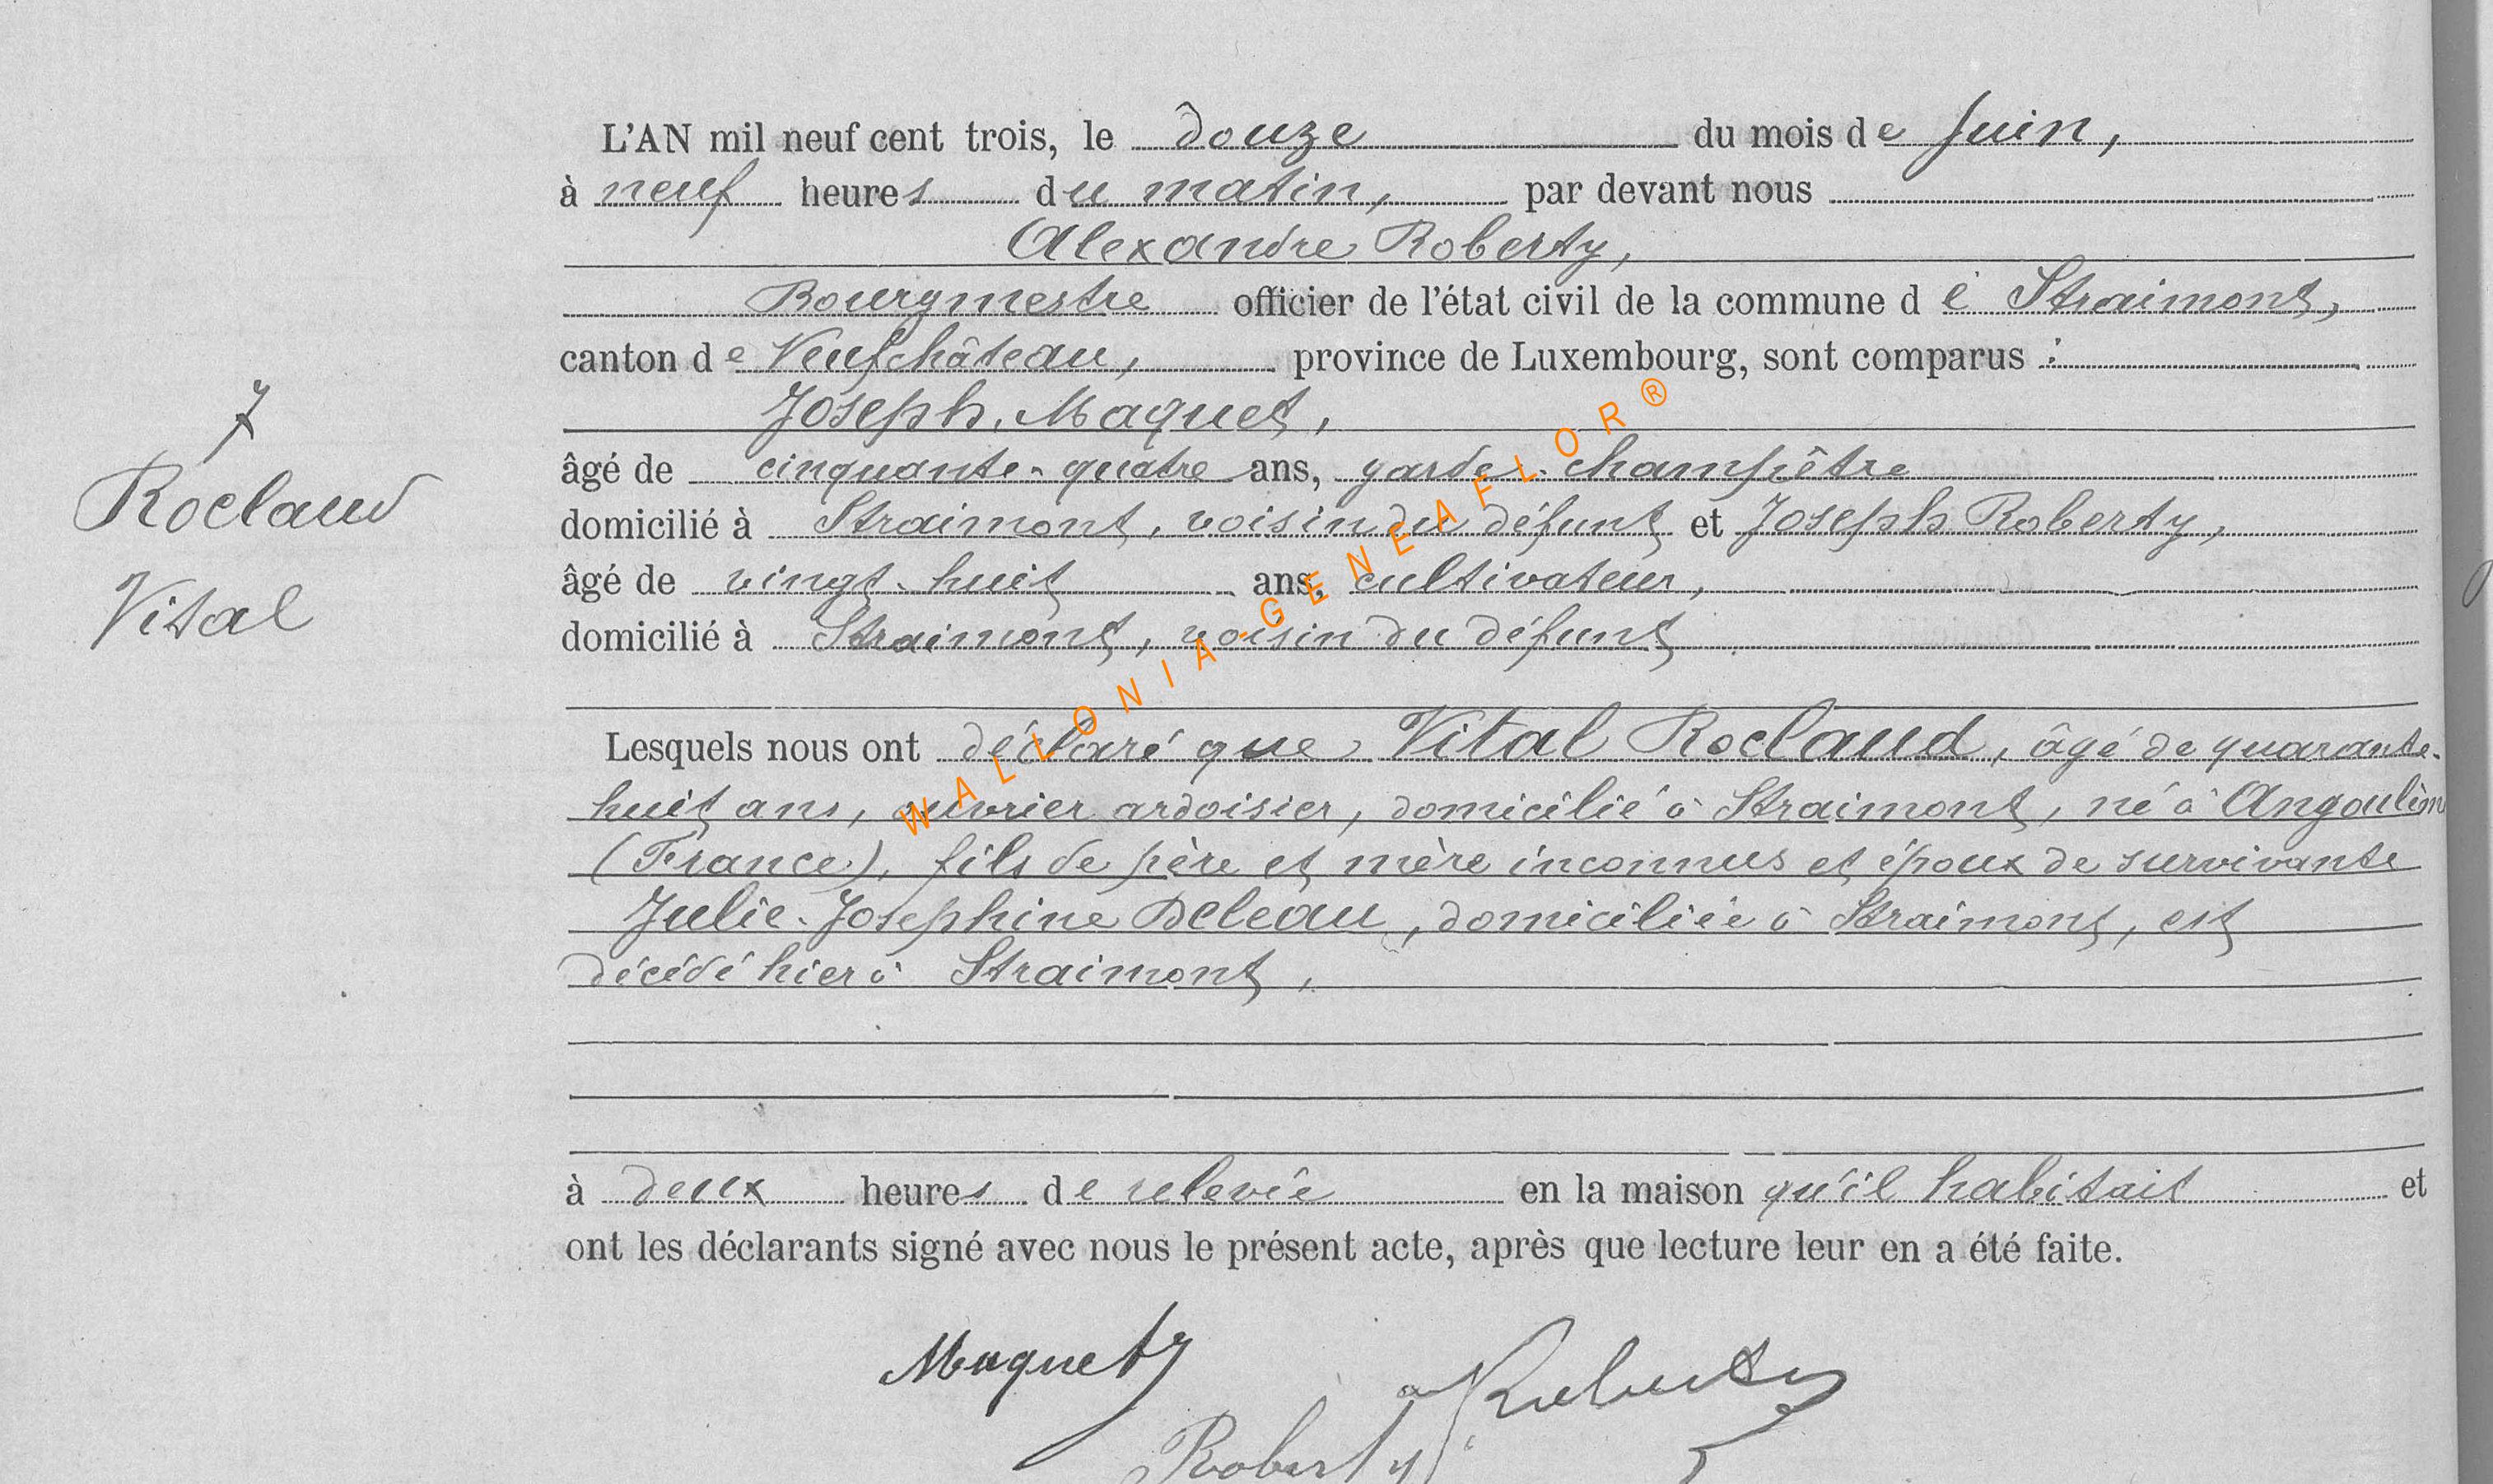 L'AN mil neuf cent trois, le douze du mois de Juin,
à neuf heures du matin, par devant nous
Alexandre Roberty,
Bourgmestre officier de l'état civil de la commune de Straimont,
canton de Neufchâteau, province de Luxembourg, sont comparus :
Joseph Maquet,
âgé de cinquante-quatre ans, garde-champêtre
domicilié à Straimont, voisin du défunt et Joseph Roberty,
âgé de vingt-huit ans, cultivateur,
domicilié à Straimont, voisin du défunt
7
Roclaud
Vital
Lesquels nous ont déclaré que Vital Roclaud, âgé de quarante-
huit ans, ouvrier ardoisier, domicilié à Straimont, né à Angoulèm
(France), fils de père et mère inconnus et époux de survivante
Julie-Josephine Deleau, domiciliée à Straimont, est
décédé hier à Straimont,
à deux heures de relevée en la maison qu'il habitait et
ont les déclarants signé avec nous le présent acte, après que lecture leur en a été faite.
Maquet J
a Roberty
Roberty J
WALLONIA-GENEAFLOR®